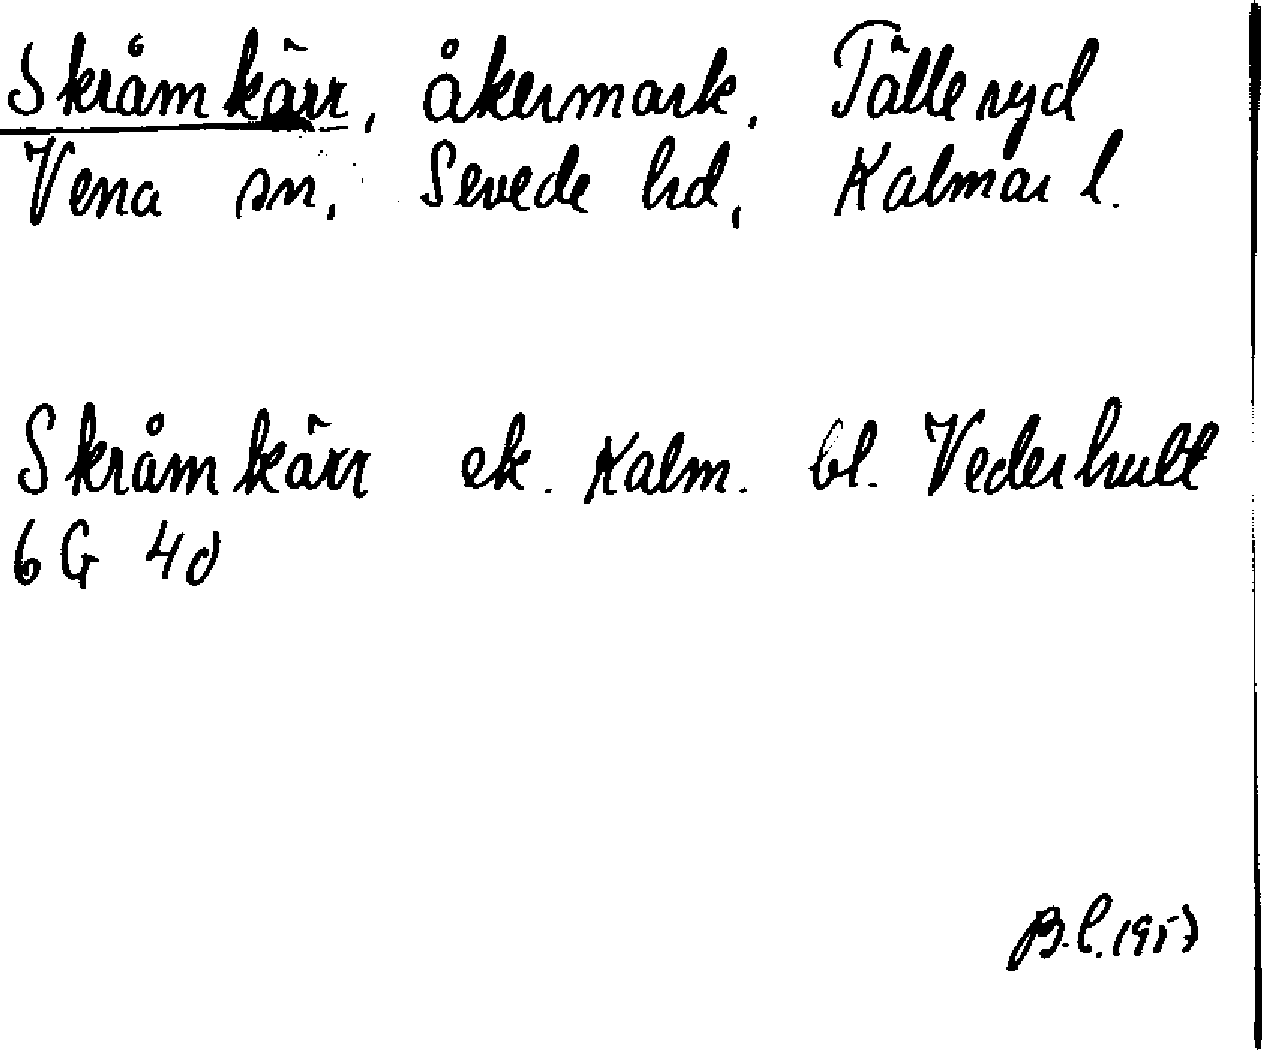 Skråmkärr, åkermark, Tälleryd
Vena sn, Sevede hd, Kalmar l.
Skråmkärr ek. Kalm. bl. Vederhult
6G 4d
B.L. 1957